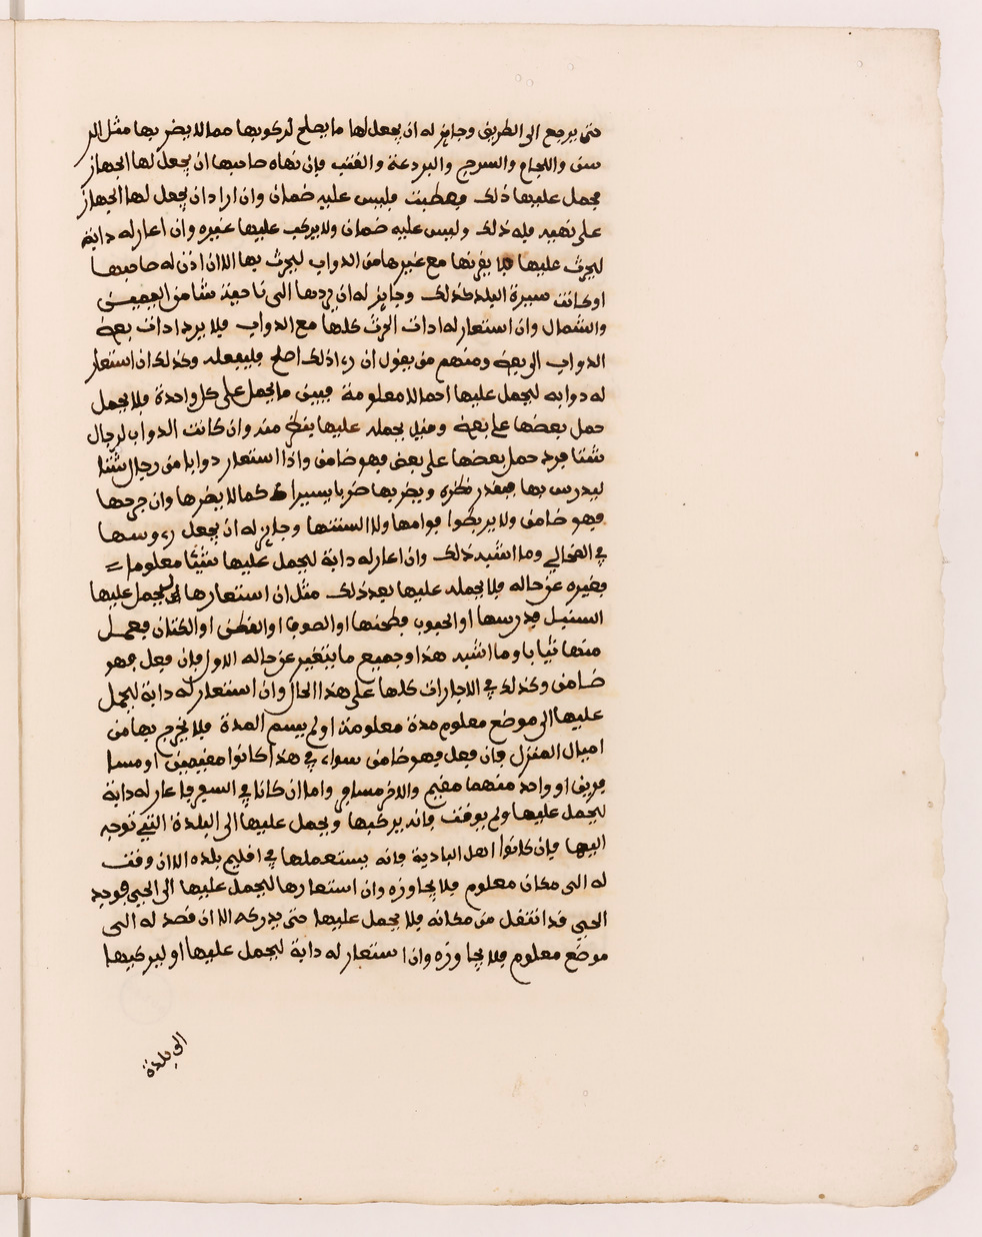 حتى يرجع الى الطريق وجايز له ان يجعل لها ما يصلح لركوبها مما لا يضر بها مثل الر
سن واللجام والسرج والبردعة والقتب فان نهاه صاحبها ان يجعل لها الجهاز
فجعل عليها ذلك فعطبت فليس عليه ضمان وان اراد ان يجعل لها الجهاز
على نهيه فله ذلك وليس عليه ضمان ولا يركب عليها غيره وان اعار له دابة
ليحرث عليها فلا يقرنها مع غيرها من الدواب ليحرث بها الا ان اذن له صاحبها
او كانت سيرة البلد كذلك وجايز له ان يردها الى ناحية شا من اليمين
والشمال وان استعار له ادات الحرث كلها مع الدواب فلا يرد ادات بعض
الدواب الى بعض ومنهم من يقول ان رءا ذلك اصلح فليفعله وكذلك ان استعار
له دوابه ليحمل عليها احمالا معلومة فبين ما يحمل على كل واحدة فلا يحمل
حمل بعضها على بعض وقيل يحمله عليها بنظر منه وان كانت الدواب لرجال
شتا فرد حمل بعضها على بعض فهو ضامن واذا استعار دوابا من رجال شتا
ليدرس بها فبقدر نظره ويضربها ضربا يسيرا كما لا يضرها وان جرحها
فهو ضامن ولا يربطوا فوامها ولا السنتها وجايز له ان يجعل رءوسها
في المخالي وما اشبه ذلك وان اعار له دابة ليحمل عليها شيئا معلوما =
فغيره عن حاله فلا يحمله عليها بعد ذلك مثل ان استعارها ليحمل عليها
السنبل فدرسها او الحبوب فطحنها او الصوف او القطن او الكتان فعمل
منها ثيابا وما اشبه هذا وجميع ما يتغير عن حاله الاول فان فعل فهو
ضامن وكذلك في الاجارات كلها على هذا الحال وان استعار له دابة ليحمل
عليها الى موضع معلوم مدة معلومة او لم يسم المدة فلا يخرج بها من
اميال المنزل فان فعل فهو ضامن سواء في هذا كانوا مقيمين او مسا
فرين او واحد منهما مقيم والاخر مسافر واما ان كانا في السفر فاعار له دابة
ليحمل عليها ولم يوقت فانه يركبها ويحمل عليها الى البلدة التي توجه
اليها فان كانوا اهل البادية فانه يستعملها في اقليم بلده الا ان وقت
له الى مكان معلوم فلا يجاوزه وان استعارها ليحمل عليها الى الحي فوجد
الحي قد انتقل من مكانه فلا يحمل عليها حتى يدركه الا ان قصد له الى
موضع معلوم فلا يجاوزه وان استعار له دابة ليحمل عليها او ليركبها
الى بلدة